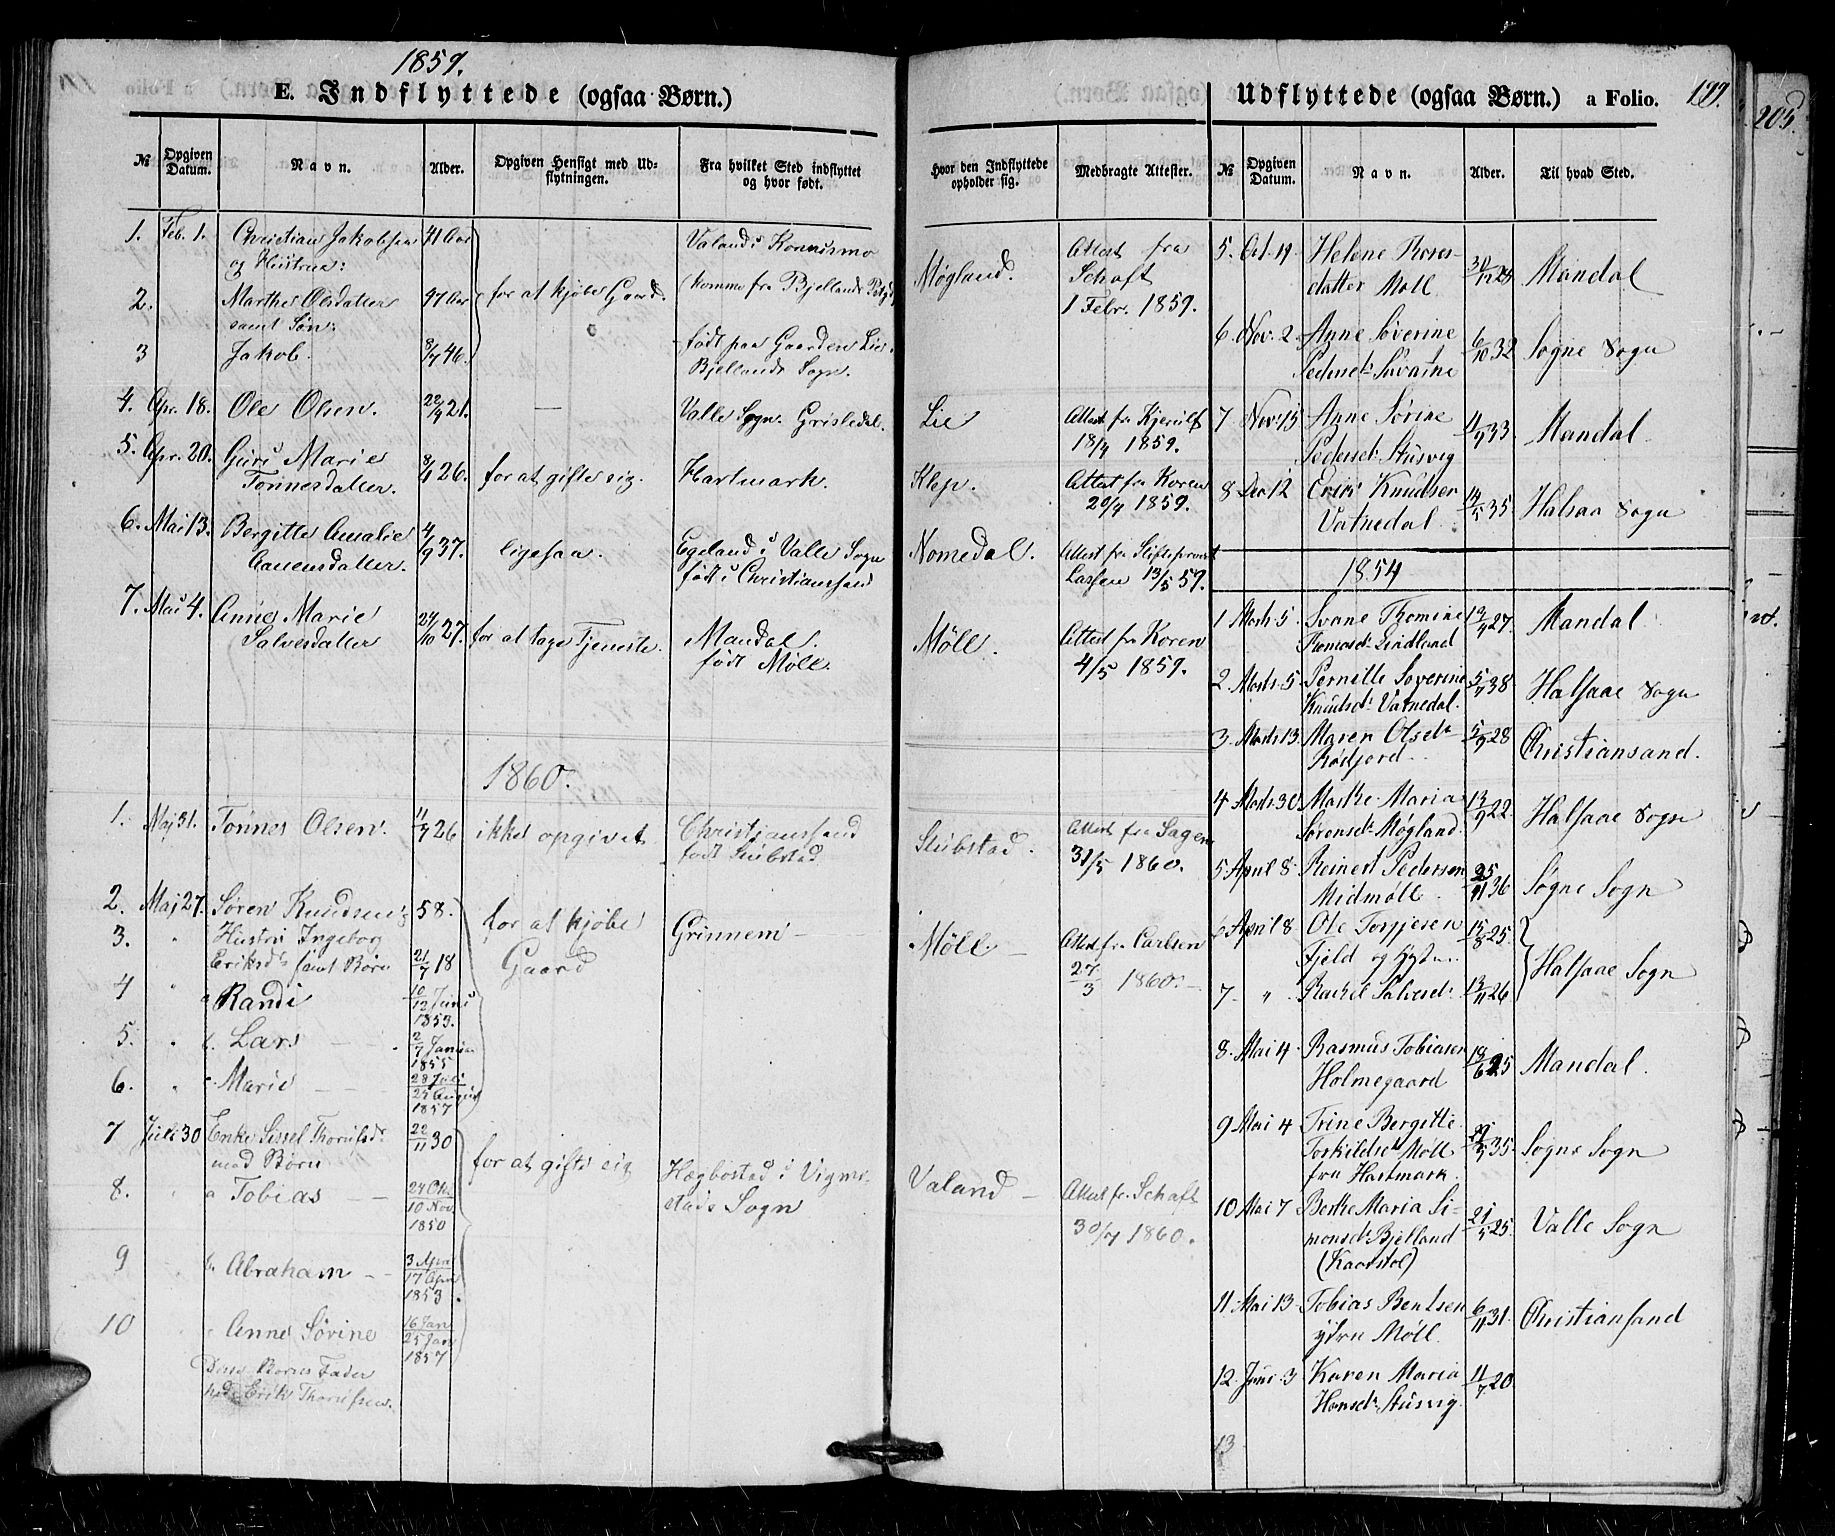 1859.
E. Indflyttede (ogsaa Børn.)
№
Opgiven Datum.
Navn.
Alder.
Opgiven Hensigt med Udflytningen.
Fra hvilket Sted indflyttet og hvor født.
1. Feb. 1. Christian Jakobsen 41 Aar Valand i Konnismo
og Hustrue:
2. Marthe Olsdatter 47 Aar for at kjøbe Gaard. (komme fra Bjellands
samt Søn:
3 Jakob. 8/7 46. født paa Gaarden Lie
Bjellands Sogn.
4. Apr. 18. Ole Olsen. 22/9 21. — Valle Sogn. Grisledal.
5. Apr. 20. Guri Marie 8/4 26. for at gifte sig. Hartmark.
Tønnesdatter.
6. Mai 13. Bergitte Amalie 4/9 37. ligesaa. Egeland i Valle Sogn
Aanensdatter. født i Christianssand
7. Mai 4. Anne Marie 24/10 27. for at tage Tjeneste. Mandal.
Salvesdatter født Møll.
1860.
1. Maj 31. Tønnes Olsen. 11/7 26 ikke opgivet Christianssand
født Stubstad
2. Maj 27. Søren Knudsen 58. for at kjøbe Grinnem —
3. " Hustru Ingeborg Gaard
Eriksd. samt Børn 21/7 18
4 " a Randi 10/12 Juni
1853.
5. " b. Lars 2/7 Janua
1855
6. " c. Marie 28 Juli
23 August
1857
7 Juli 30 Enke Sissel Thorulsdr 22/11 30 for at gifte sig Hægbostad i Vigmo-
med Børn stads Sogn
8. " a Tobias 24 Okt
10 Nov
1850
9 " b. Abraham 3 Apr
17 Apr
1853
10 " Anne Sørine 16 Jan
25 Jan
1857
Disse Børns Fader
hed Erik Thorulfsen.
Hvor den Indflyttede opholder sig.
Medbragte Attester.
Møgland. Attest fra
Schaft
1 Febr. 1859.
Lie Attest fr Kjerulf
18/4 1859.
Klep. Attest fra Koren
20/4 1859.
Nomedal. Attest fra Stiftsprovst
Lassen 13/5 59.
Møll. Attest fra Koren
4/5 1859.
Stubstad. Attest fra Sagen
31/5 1860.
Møll — Attest fr Carlsen
27/3 1860.
Valand — Attest fr. Schaft
30/7 1860.
Udflyttede (ogsaa Børn.) a Folio. 199.
205.
№
Opgiven Datum.
Navn.
Alder.
Til hvad Sted.
5. Oct. 19 Helene Thores- Mandal
datter Møll
6 Nov. 2 Anne Søverine 6/10 32 Sogne Sogn
Pedersdr.
7 Nov. 15 Anne Sørine 11/9 33. Mandal
Pedersdr. Stusvig
8 Dec 12 Erik Knudsen 14/5 35. Halsaa Sogn
Vatnedal
1854
1 Marts 5 Svane Thomine 27. Mandal
Thomasdr Lindland
2 Marts 5 Pernille Soverine 5/7 38 Halsaae Sogn
Knutsdr Vatnedal.
3 Marts 13 Maren Olsdr 5/9 28 Christiansand.
Rødjord
4 Marts 30 Marthe Maria 13/9 22 Halsaae Sogn
Sørensdr Møgland.
5 April 8 Reinert Pedersen 25/11 36 Søgne Sogn
Midmøll
6 April 8 Ole Torjesen 13/8 25
Fjeld og Hustru Halsaae Sogn
7 " Rachel Salvesdr 13/11 26
8 Mai 4 Rasmus Tobiasen 18/6 25 Mandal
Holmegaard
9 Mai 4 Trine Bergitte 35 Sogne Sogn
Torkildsdr Møll
fra Hartmark
10 Mai 7 Berthe Maria Si- 21/5 25 Valle Sogn
monsdr Bjelland
(Kaarstol)
11 Mai 13 Tobias Bentsen 6/11 31. Christianssand
ytre Møll
12. Juni 3 Karen Maria 11/7 20
Hansdr Stusvig
13